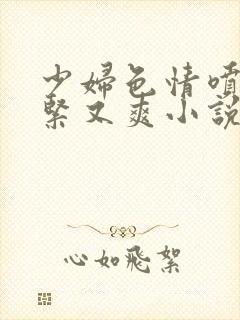 少婦色情噴
緊又爽小說
心如飛絮